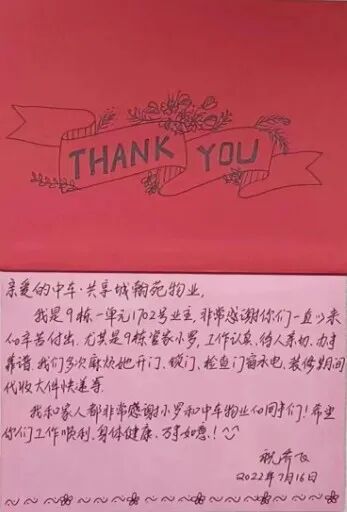 THANK YOU
亲爱的中车·共享城翰苑物业,
我是9栋一单元1702号业主,非常感谢你们一直以来
的辛苦付出,尤其是9栋管家小罗,工作认真、待人亲切、办事
靠谱,我们多次麻烦她开门、锁门、检查门窗水电、装修期间
代收大件快递等.
我和家人都非常感谢小罗和中车物业的同事们!希望
你们工作顺利、身体健康、万事如意!
2022年7月16日